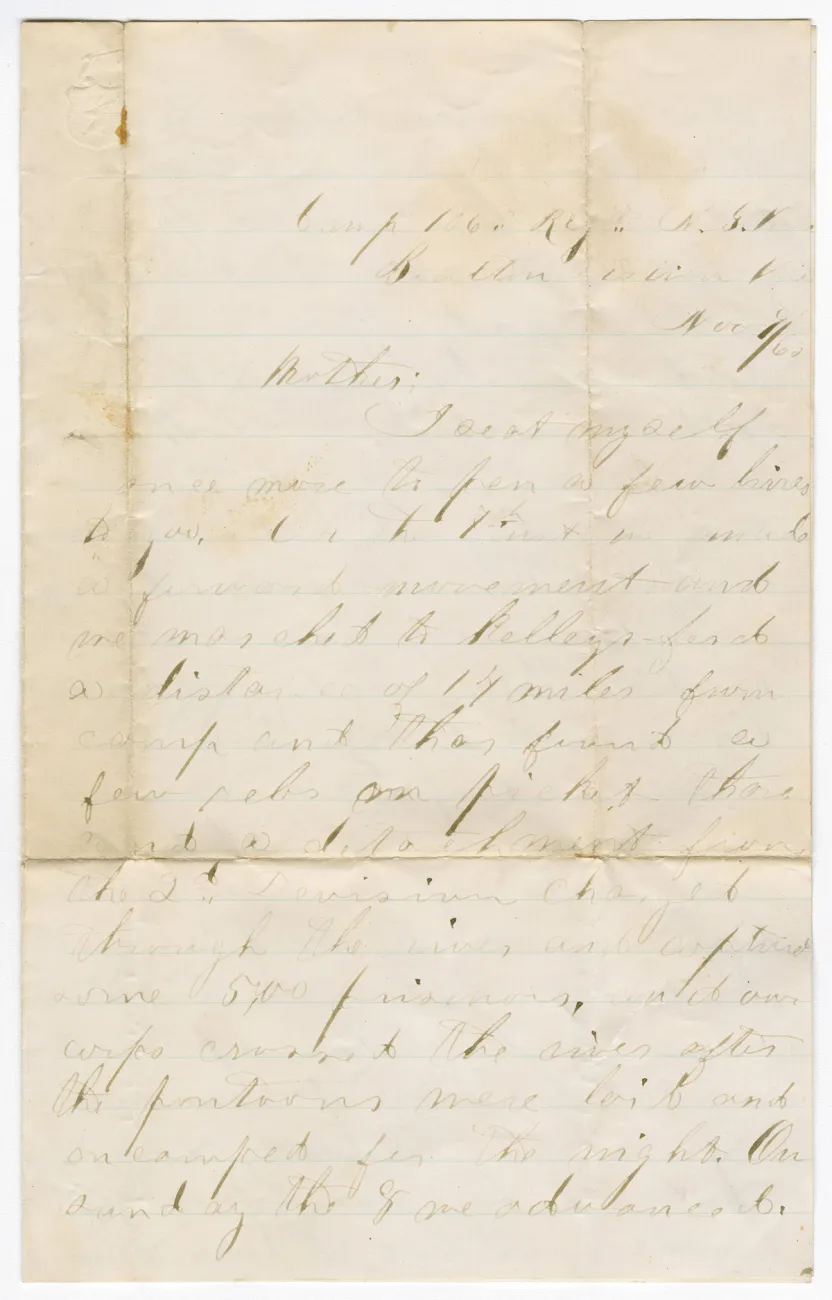 Camp 126" Reg" N.Y.V.
Station Via
Nov 9/63
Mother;
I seat myself
once more to pen a few lines
to you. On the 7th inst we made
a forward movement and
we marchet to Kelleys ford
a distance of 14 miles from
camp and thar found a
few rebs on picket thare
and a detachment from
the 2d Devision charget
through the river and captured
some 500 prisnors, and our
corps crosset the river after
the pontoons were laid and
encamped for the night. On
sunday the 8 we advanced.